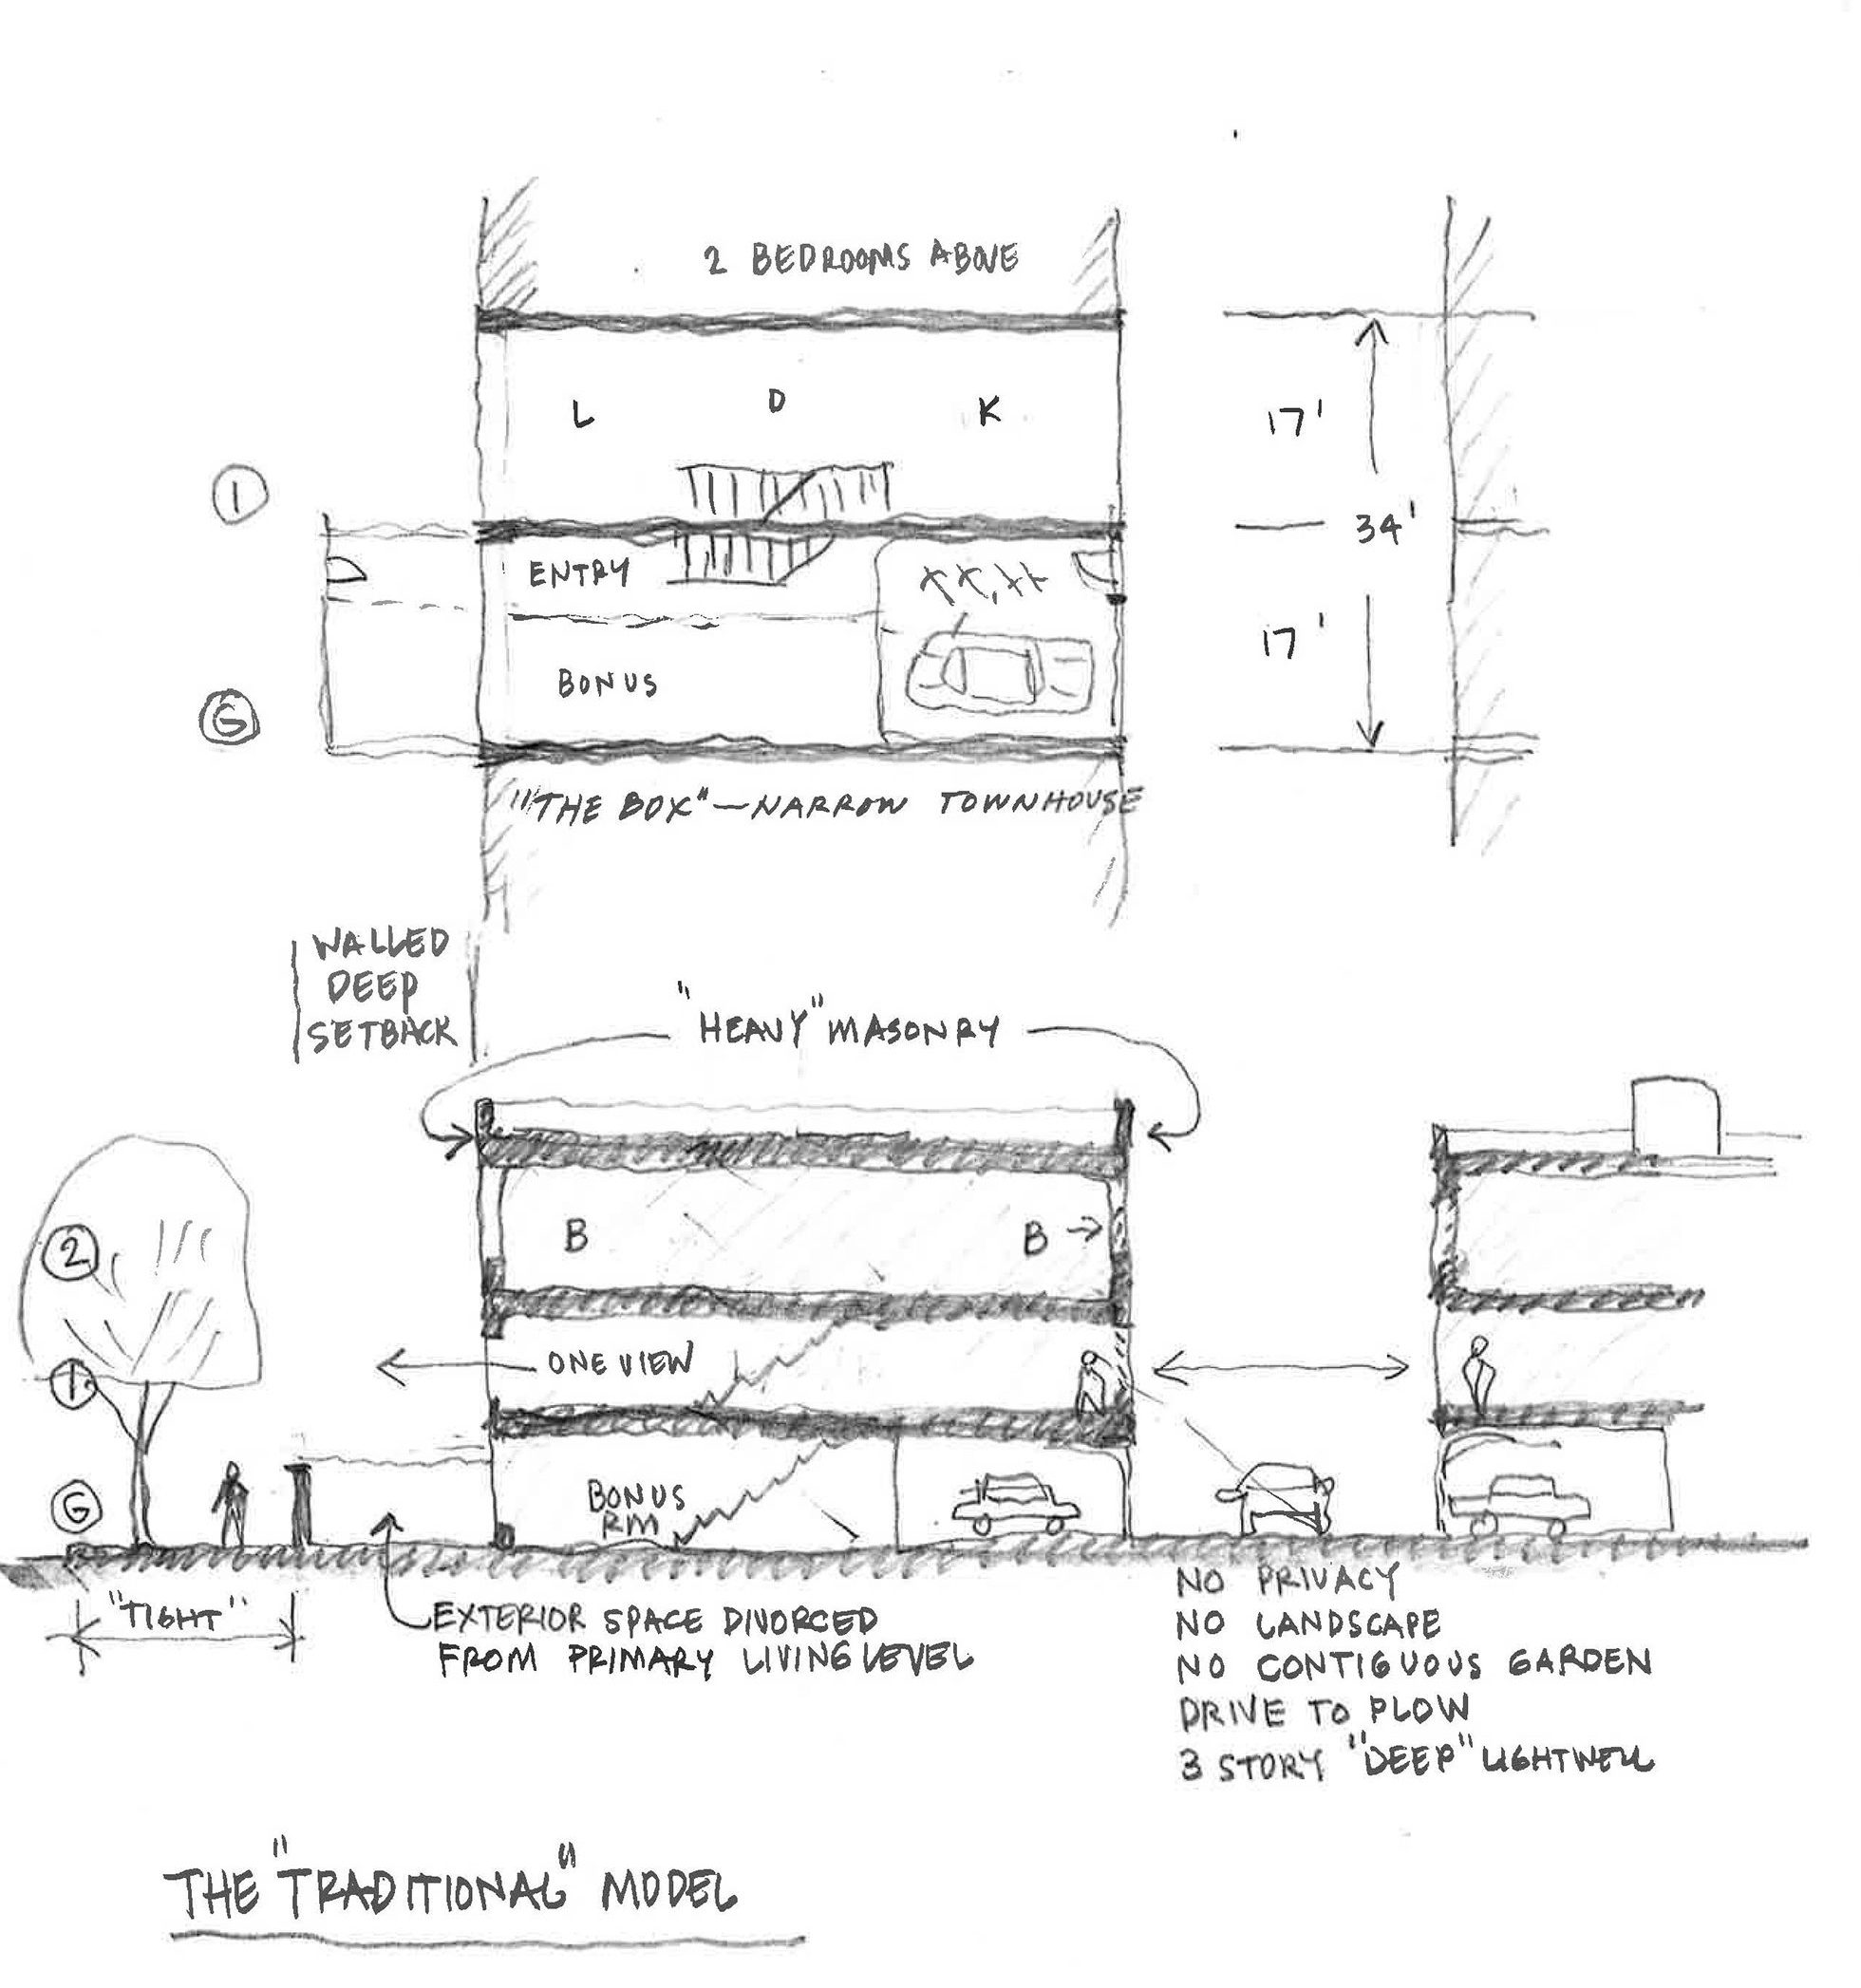 2 BEDROOMS ABOVE
L D K
17'
1
34'
ENTRY
17'
BONUS
G
"THE BOX" — NARROW TOWNHOUSE
WALLED
DEEP
SETBACK
"HEAVY" MASONRY
2
B B
1
ONE VIEW
G
BONUS
RM
"TIGHT"
EXTERIOR SPACE DIVORCED
FROM PRIMARY LIVING LEVEL
NO PRIVACY
NO LANDSCAPE
NO CONTIGUOUS GARDEN
DRIVE TO PLOW
3 STORY "DEEP" LIGHTWELL
THE "TRADITIONAL" MODEL